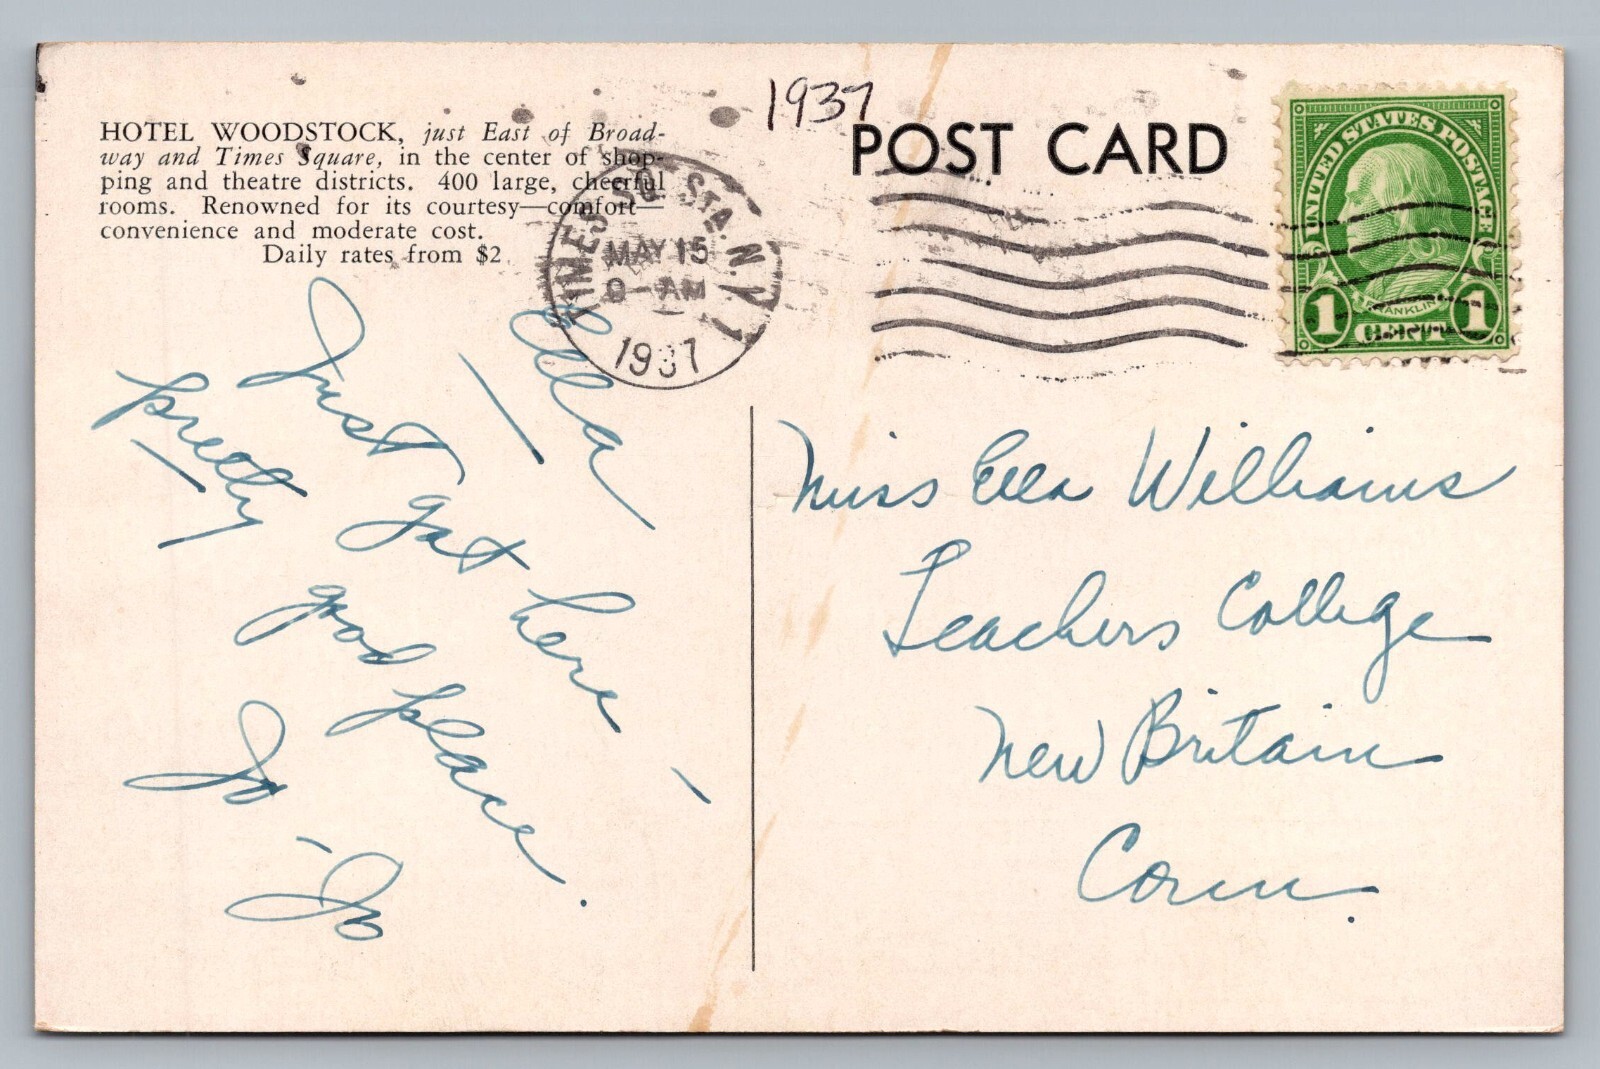 HOTEL WOODSTOCK, just East of Broad-
way and Times Square, in the center of shop-
ping and theatre districts. 400 large, cheerful
rooms. Renowned for its courtesy—comfort—
convenience and moderate cost.
Daily rates from $2
1937
POST CARD
TIMES SQ. STA. N.Y. 1
MAY 15
9-AM
1937
UNITED STATES POSTAGE
FRANKLIN
1 CENT 1
Ella —
Just got here —
pretty good place.
Jo - Jo
Miss Ella Williams
Teachers College
New Britain
Conn.